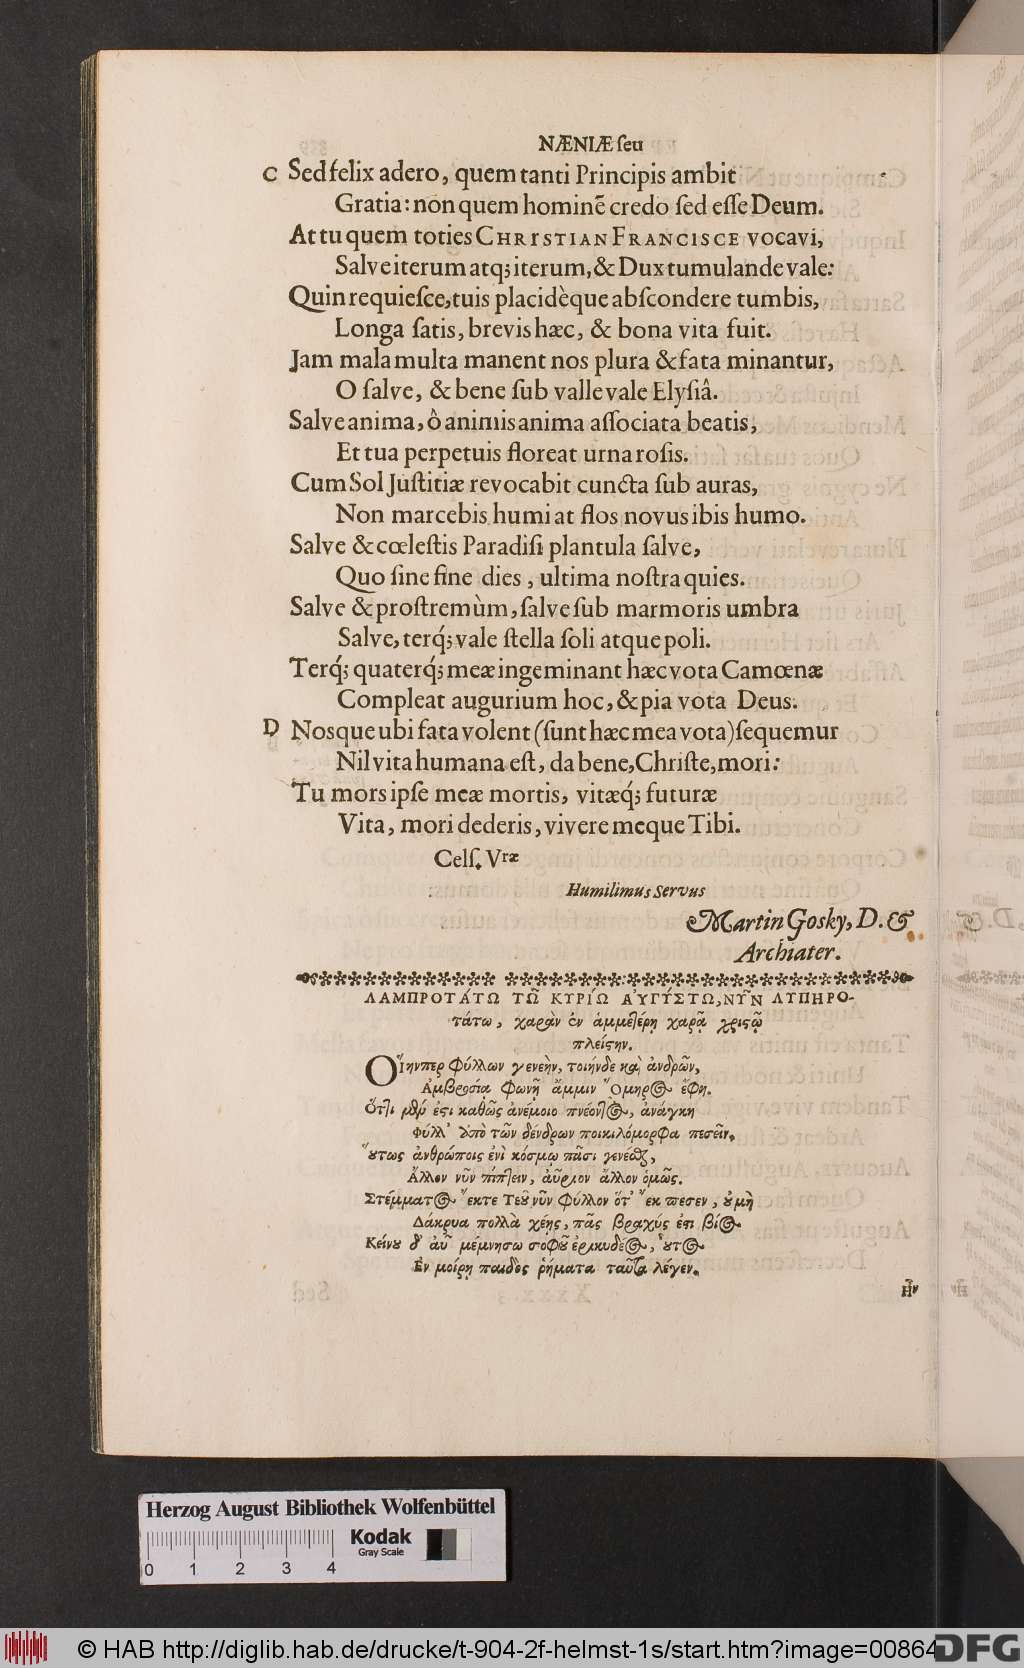 NÆNIÆ ſeu
C Sed felix adero, quem tanti Principis ambit
Gratia: non quem hominẽ credo ſed eſſe Deum.
At tu quem toties CHRISTIAN FRANCISCE vocavi,
Salve iterum atq; iterum, & Dux tumulande vale:
Quin requieſce, tuis placidèque abſcondere tumbis,
Longa ſatis, brevis hæc, & bona vita fuit.
Jam mala multa manent nos plura & fata minantur,
O ſalve, & bene ſub valle vale Elyſiâ.
Salve anima, ô animis anima aſſociata beatis,
Et tua perpetuis floreat urna roſis.
Cum Sol Juſtitiæ revocabit cuncta ſub auras,
Non marcebis humi at flos novus ibis humo.
Salve & cœleſtis Paradiſi plantula ſalve,
Quo ſine fine dies, ultima noſtra quies.
Salve & proſtremùm, ſalve ſub marmoris umbra
Salve, terq́; vale ſtella ſoli atque poli.
Terq́; quaterq́; meæ ingeminant hæc vota Camœnæ
Compleat augurium hoc, & pia vota Deus.
D Nosque ubi fata volent (ſunt hæc mea vota) ſequemur
Nil vita humana eſt, da bene, Chriſte, mori:
Tu mors ipſe meæ mortis, vitæq́; futuræ
Vita, mori dederis, vivere meque Tibi.
Celſ. Vræ
Humilimus Servus
Martin Gosky, D. &
Archiater.
ΛΑΜΠΡΟΤΆΤΩ ΤΩ͂ ΚΥΡΙΏ ΑΥ̓ΓΥΣΤΩ, ΝΥ͂Ν ΛΥΠΗΡΟ-
τάτω, χαρὰν ἐν ἁμμετέρῃ χαρᾷ χριςῷ
πλείςην.
Οἵηνπερ φύλλων γενεὴν, τοιήνδε καὶ ἀνδρῶν,
Ἀμβροσία φωνῇ ἄμμιν Ὅμηρος ἔφη.
Ὅτλι μὲν ἐςι καθῶς ἀνέμοιο πνέοντος, ἀνάγκη
Φύλλ' ἀπὸ τῶν δένδρων ποικιλόμορφα πεσεῖν.
Ὅυτως ἀνθρώποις ἐνὶ κόσμῳ πᾶσι γενέας,
Ἄλλον νῦν πίπτειν, αὔριον ἄλλον ὁμῶς.
Στέμματος ἔκτε Τεῦ νῦν φύλλον ὅτ' ἔκπεσεν, ȣ μὴ
Δάκρυα πολλὰ χέῃς, πᾶς βραχύς ἐςι βίος
Κείνȣ δ' αὖ μέμνησω σοφȣ͂ ἐρικυδέος, ȣ̓τος
Ἐν μοίρῃ παιδὸς ῥήματα ταῦτα λέγεν.
Ἢν
Herzog August Bibliothek Wolfenbüttel
Kodak
Gray Scale
0 1 2 3 4
© HAB http://diglib.hab.de/drucke/t-904-2f-helmst-1s/start.htm?image=00864
DFG